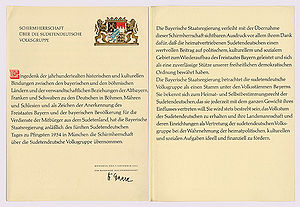 SCHIRMHERRSCHAFT
ÜBER DIE SUDETENDEUTSCHE
VOLKSGRUPPE
Eingedenk der jahrhundertealten historischen und kulturellen
Bindungen zwischen den bayerischen und den böhmischen
Ländern und der verwandtschaftlichen Beziehungen der Altbayern,
Franken und Schwaben zu den Deutschen in Böhmen, Mähren
und Schlesien und als Zeichen der Anerkennung des
Freistaates Bayern und der bayerischen Bevölkerung für die
Verdienste der Mitbürger aus dem Sudetenland, hat die Bayerische
Staatsregierung anläßlich des fünften Sudetendeutschen
Tages zu Pfingsten 1954 in München die Schirmherrschaft
über die Sudetendeutsche Volksgruppe übernommen.
MÜNCHEN, DEN 7. NOVEMBER 1962
Die Bayerische Staatsregierung verleiht mit der Übernahme
dieser Schirmherrschaft sichtbaren Ausdruck vor allem ihrem Dank
dafür, daß die heimatvertriebenen Sudetendeutschen einen
wertvollen Beitrag zum politischen, kulturellen und sozialen
Gebiet zum Wiederaufbau des Freistaates Bayern geleistet und sich
als eine zuverlässige Stütze unserer freiheitlichen demokratischen
Ordnung bewährt haben.
Die Bayerische Staatsregierung betrachtet die sudetendeutsche
Volksgruppe als einen Stamm unter den Volksstämmen Bayerns.
Sie bekennt sich zum Heimat- und Selbstbestimmungsrecht der
Sudetendeutschen, das sie jederzeit mit dem ganzen Gewicht ihres
Einflusses vertreten will. Sie wird stets bestrebt sein, das Volkstum
der Sudetendeutschen zu erhalten und ihre Landsmannschaft und
deren Einrichtungen als Vertretung der sudetendeutschen Volksgruppe
bei der Wahrnehmung der heimatpolitischen, kulturellen
und sozialen Aufgaben ideell und finanziell zu fördern.